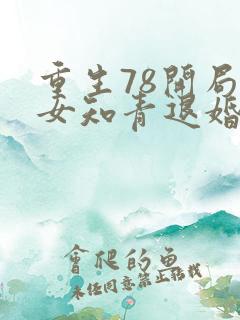 重生78開局
女知青退婚
會爬的魚
未经同意禁止转载